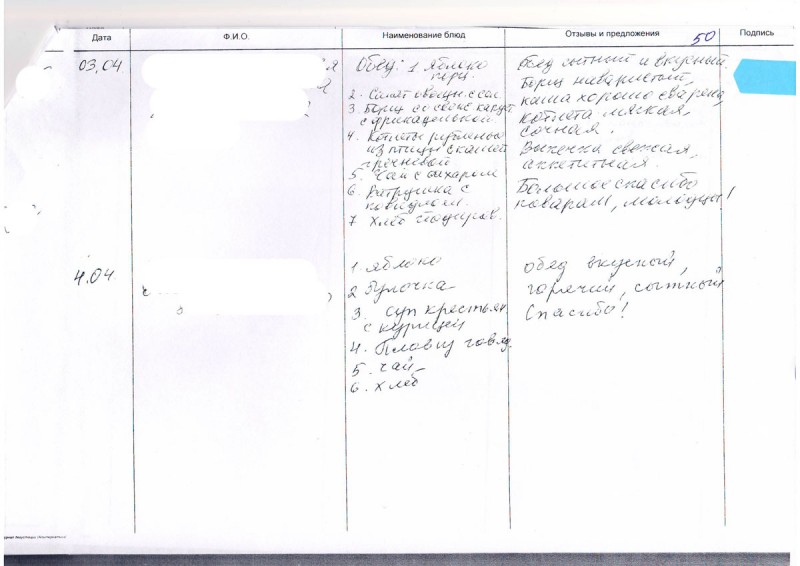 Дата Ф.И.О. Наименование блюд Отзывы и предложения Подпись
50
03,04
Обед: 1 Яблоко
2. Салат овощн. с сол.
3. Борщ со свеж капуст
с фрикаделькой
4. Котлеты рубленые
из птицы с кашей
гречневой
5. Чай с сахаром
6. Ватрушка с
повидлом.
7 Хлеб йодиров.
Обед сытный и вкусный.
Борщ наваристый,
каша хорошо сварена,
котлета мягкая,
сочная.
Выпечка свежая,
аппетитная.
Большое спасибо
поварам, молодцы!
4.04.
1. Яблоко
2 Булочка
3. Суп крестьян.
с курицей
4. Плов из говяд.
5. чай
6. хлеб
обед вкусный,
горячий, сытный
Спасибо!